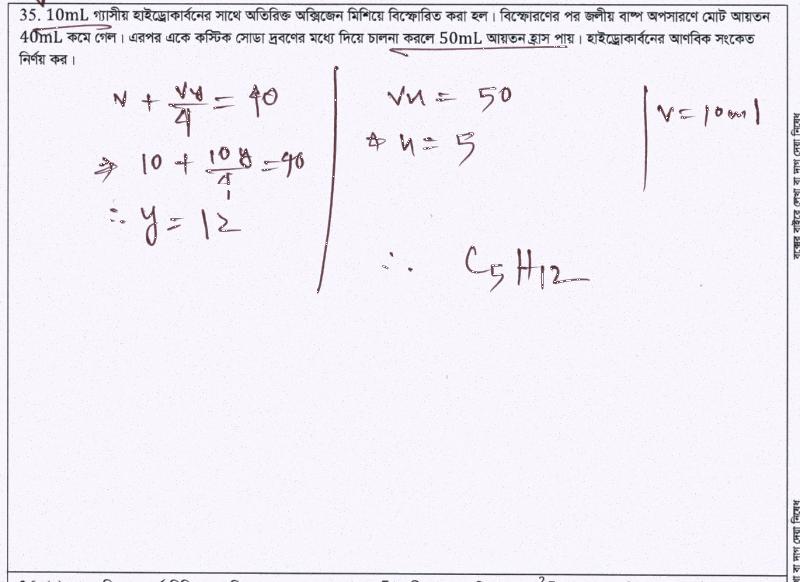 35. 10mL গ্যাসীয় হাইড্রোকার্বনের সাথে অতিরিক্ত অক্সিজেন মিশিয়ে বিস্ফোরিত করা হল। বিস্ফোরণের পর জলীয় বাষ্প অপসারণে মোট আয়তন
40mL কমে গেল। এরপর একে কস্টিক সোডা দ্রবণের মধ্যে দিয়ে চালনা করলে 50mL আয়তন হ্রাস পায়। হাইড্রোকার্বনের আণবিক সংকেত
নির্ণয় কর।
v + vy/4 = 40
⇒ 10 + 10y/4 = 40
∴ y = 12
vx = 50
⇒ x = 5
v = 10ml
∴ C₅H₁₂